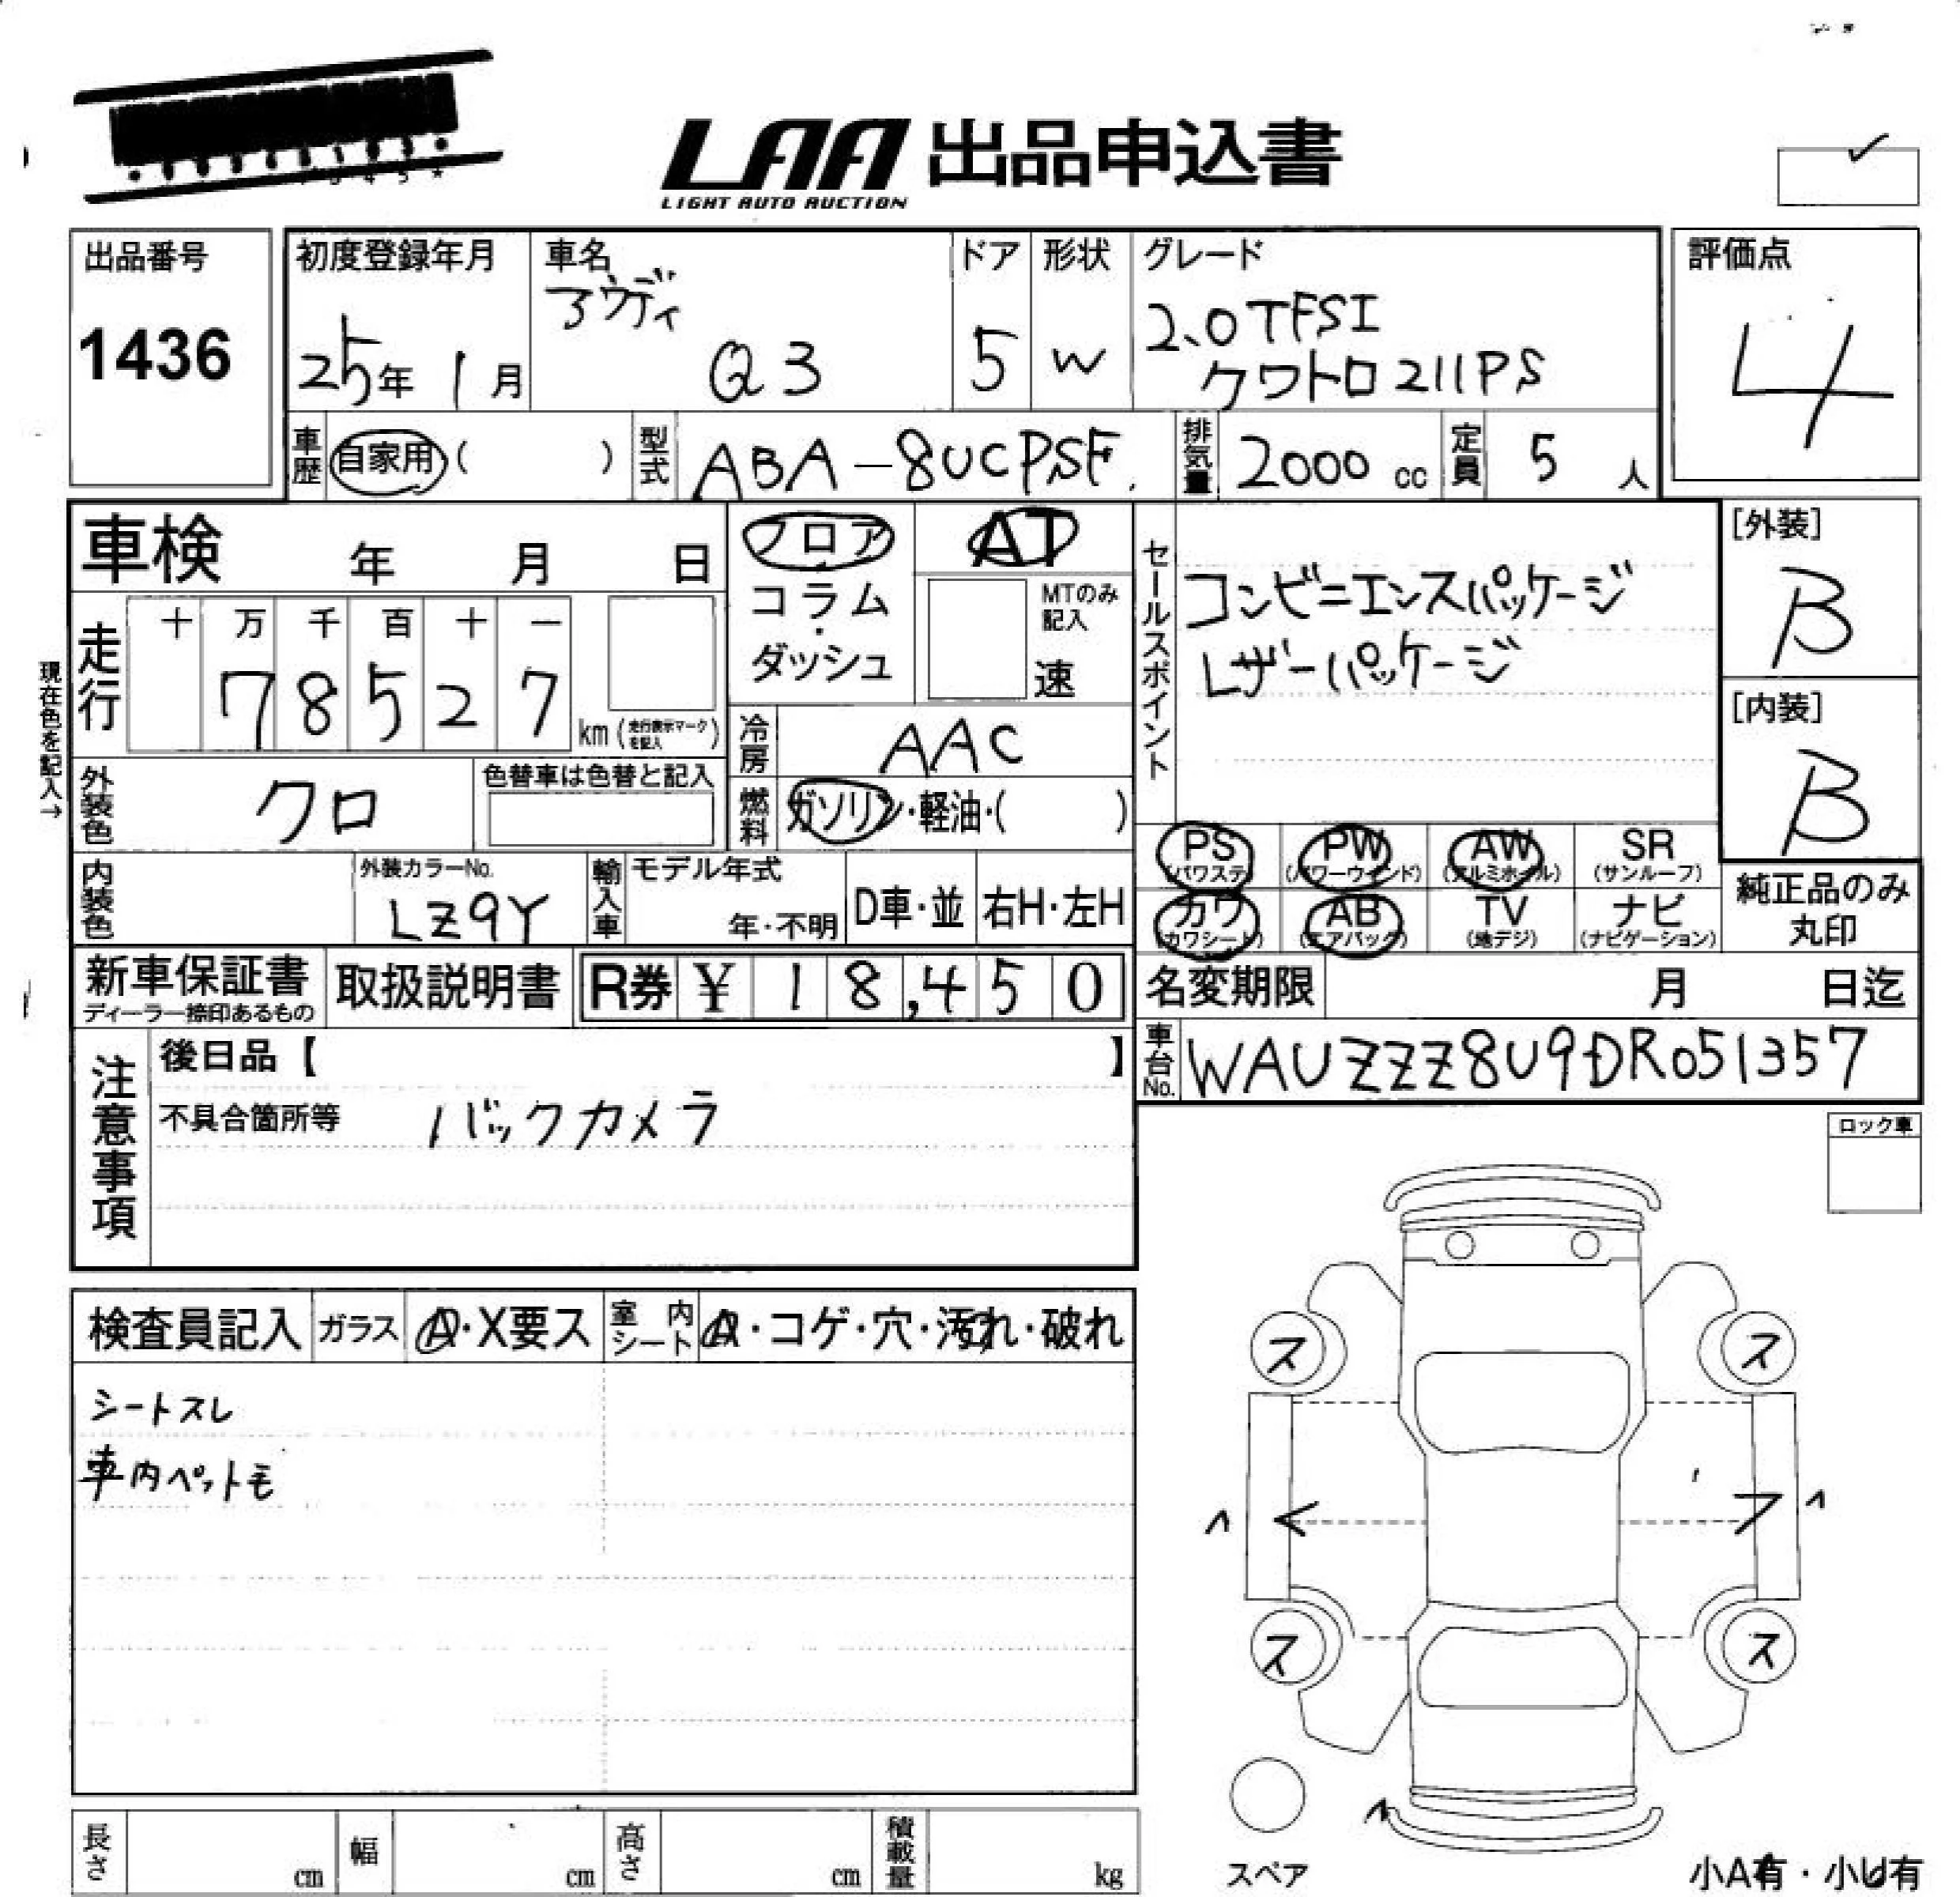 LAA 出品申込書
LIGHT AUTO AUCTION
出品番号
1436
初度登録年月
25年 1月
車名
アウディ
Q3
ドア
5
形状
W
グレード
2.0TFSI
クワトロ211PS
評価点
4
車歴 自家用 ( )
型式 ABA-8UCPSF
排気量 2000 cc
定員 5 人
車検 年 月 日
フロア
コラム
・
ダッシュ
AT
MTのみ
記入
速
セールスポイント
コンビニエンスパッケージ
レザーパッケージ
[外装]
B
[内装]
B
現在色を記入→
走行
十 万 千 百 十 一
7 8 5 2 7 km (走行表示マークを記入)
冷房 AAC
外装色 クロ
色替車は色替と記入
燃料 ガソリン・軽油・( )
PS (パワステ)
PW (パワーウインド)
AW (アルミホイル)
SR (サンルーフ)
カワ (カワシート)
AB (エアバック)
TV (地デジ)
ナビ (ナビゲーション)
純正品のみ
丸印
内装色
外装カラーNo.
LZ9Y
輸入車
モデル年式
年・不明
D車・並
右H・左H
新車保証書
ディーラー捺印あるもの
取扱説明書
R券 ¥ 18,450
名変期限 月 日迄
車台No. WAUZZZ8U9DR051357
注意事項
後日品【 】
不具合箇所等 バックカメラ
ロック車
検査員記入
ガラス A・X要ス
室内シート A・コゲ・穴・汚れ・破れ
シートスレ
車内ペット毛
ス ス
ス ス
スペア
小A有・小U有
長さ cm
幅 cm
高さ cm
積載量 kg